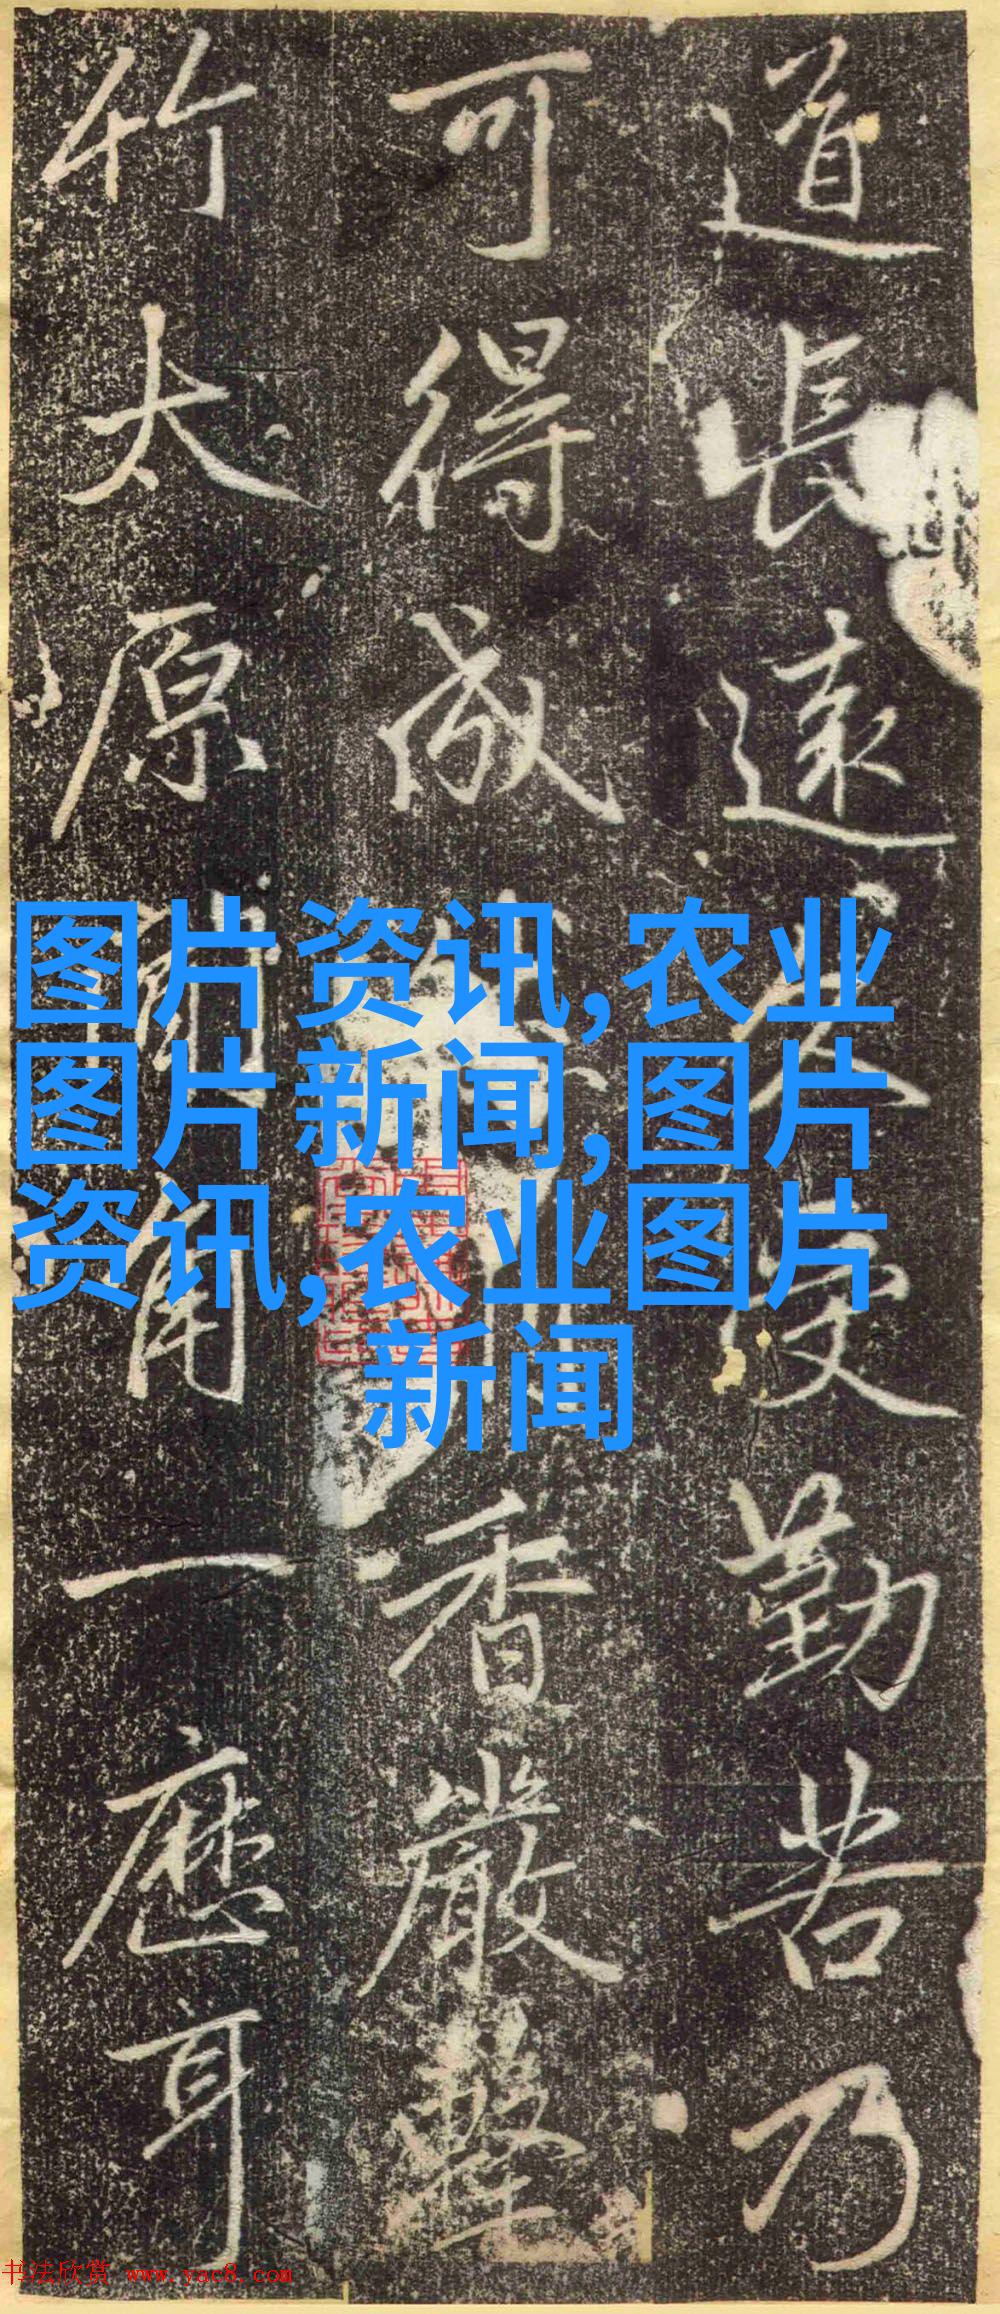 道長遠久受勤苦乃
可得成香嚴擊
竹太原聞角一應耳
图片资讯,农业
图片新闻,图片
资讯,农业图片
新闻
书法欣赏 www.yac8.com